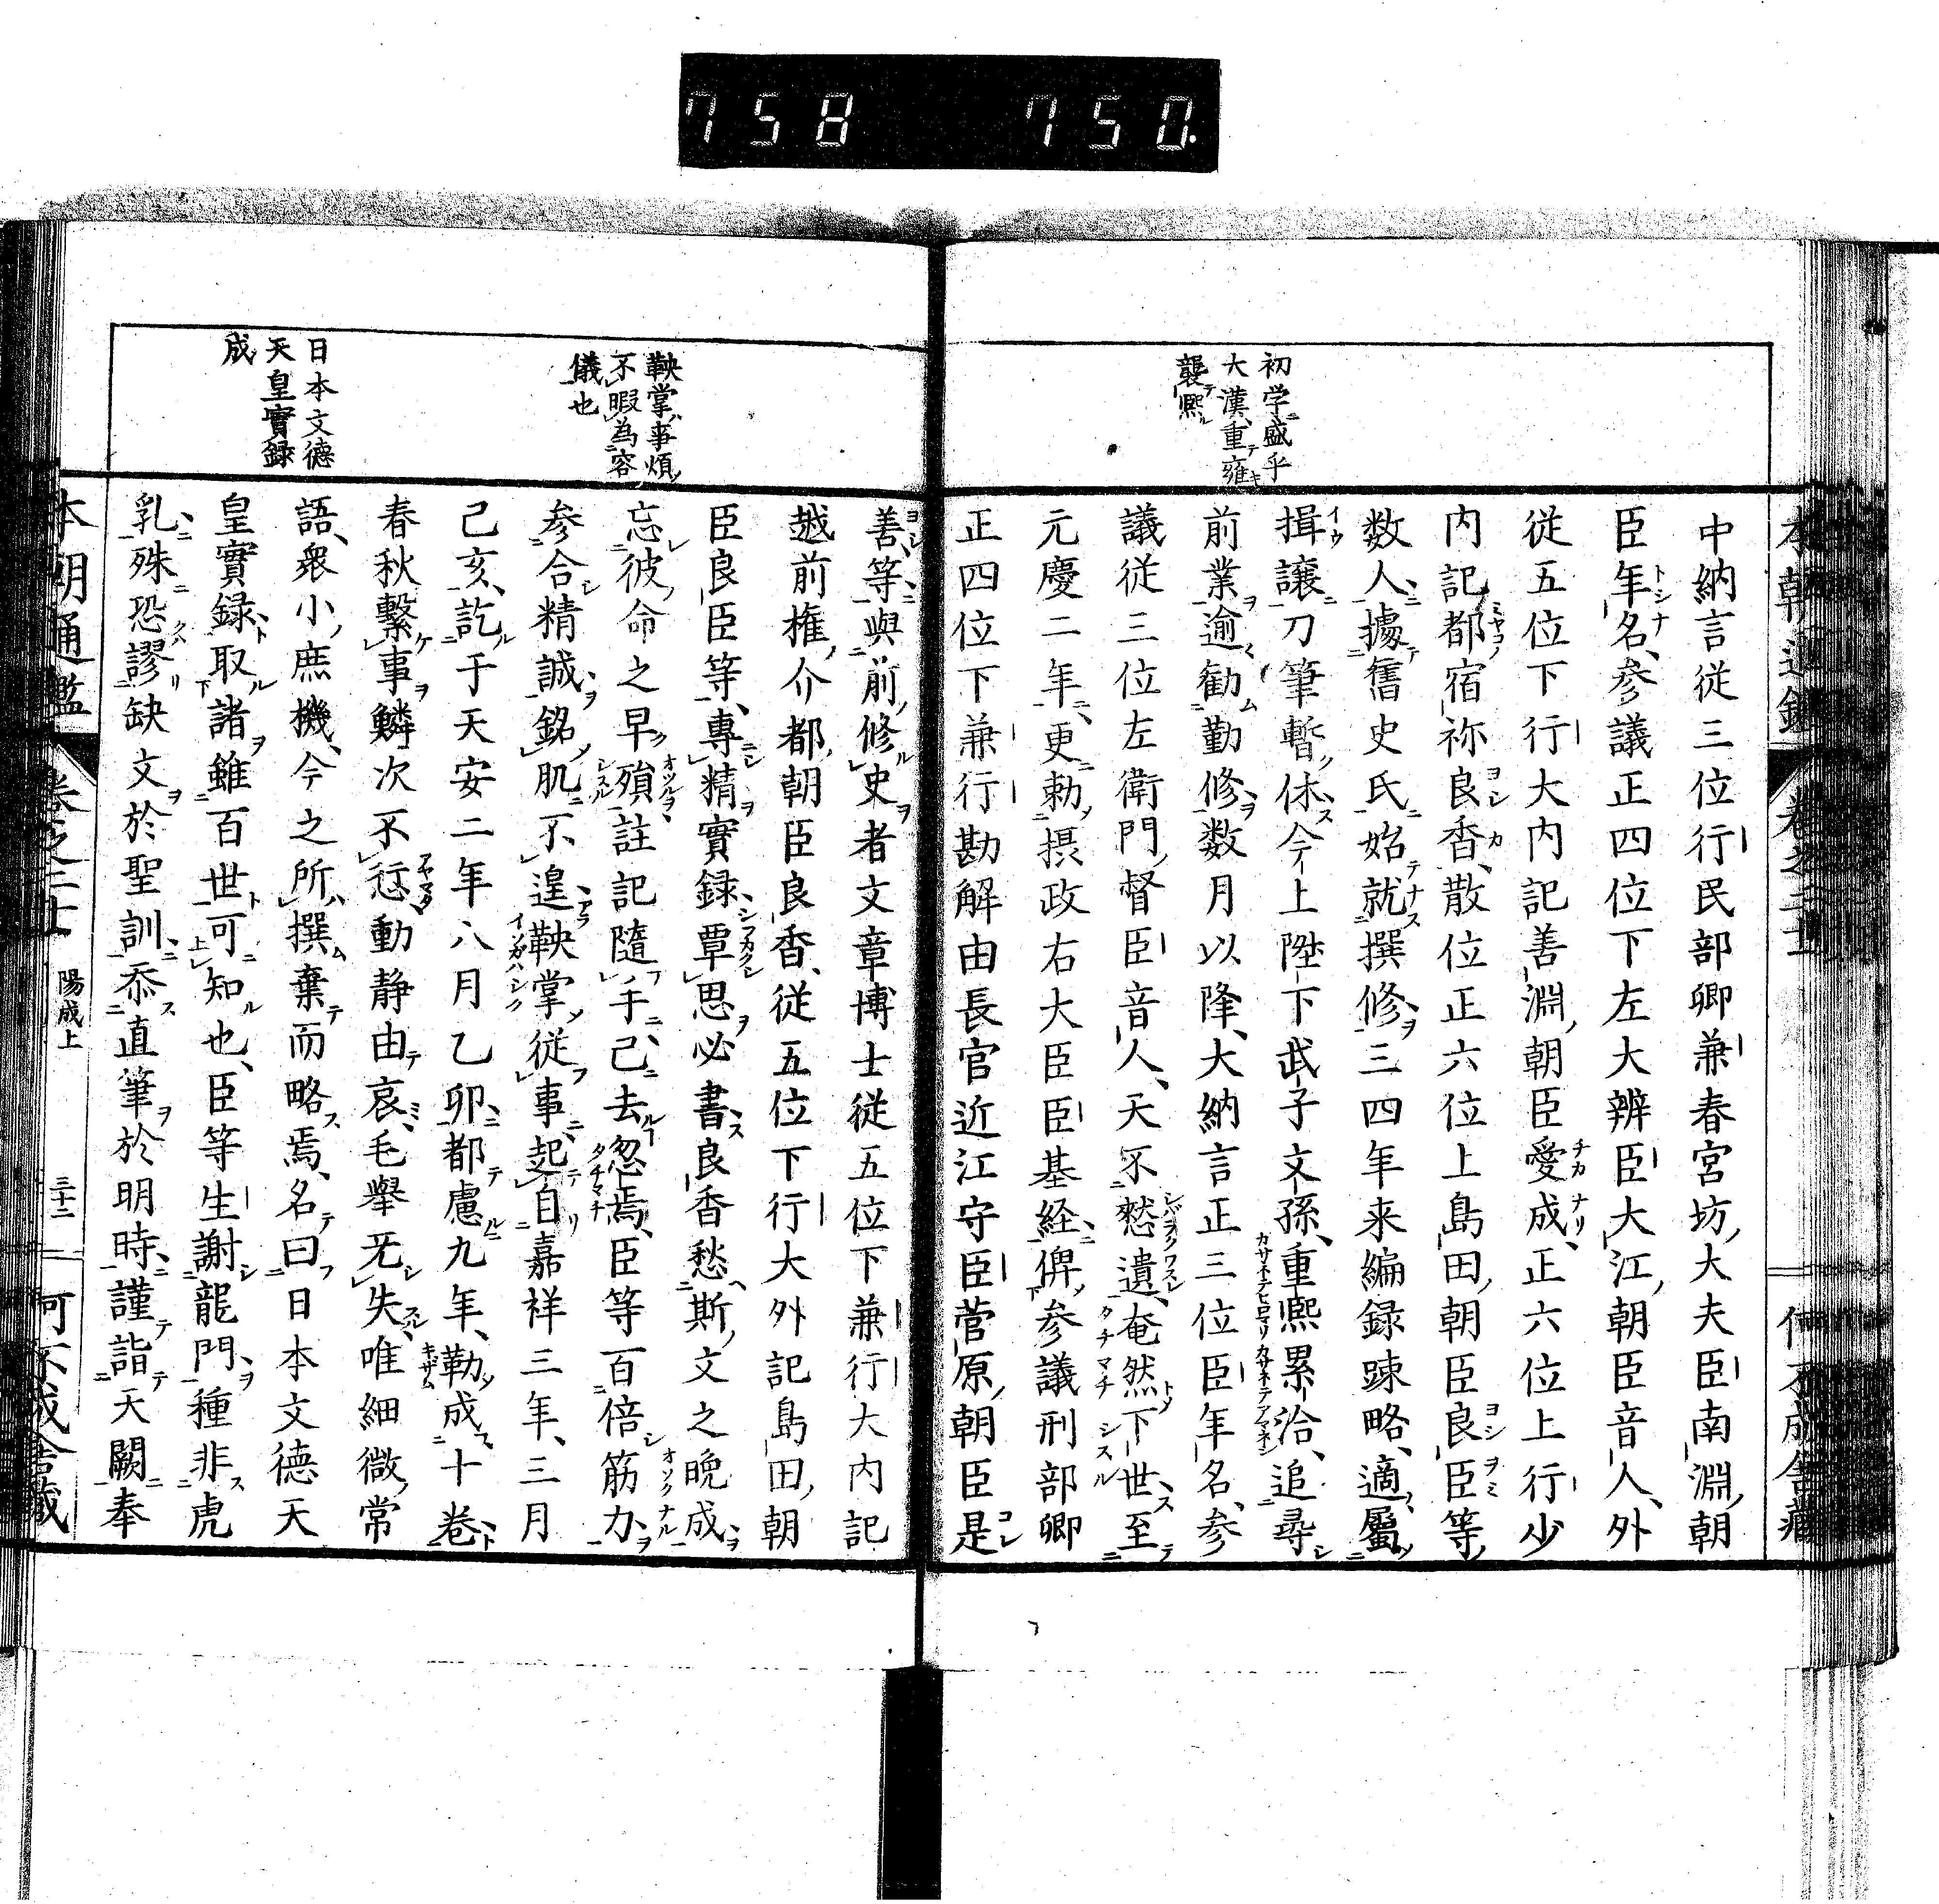 758 750.
初学盛乎
大漢重雍
襲熙
中納言従三位行民部卿兼春宮坊大夫臣南淵朝
臣年名参議正四位下左大辨臣大江朝臣音人外
従五位下行大内記善淵朝臣愛成正六位上行少
内記都宿祢良香散位正六位上島田朝臣良臣等
数人據舊史氏始就撰修三四年来編録踈略適属
揖譲刀筆暫休今上陞下武子文孫重熙累洽追尋
前業逾勧勤修数月以降大納言正三位臣年名参
議従三位左衛門督臣音人天不憖遺奄然下世至
元慶二年更勅摂政右大臣臣基経俾参議刑部卿
正四位下兼行勘解由長官近江守臣菅原朝臣是
鞅掌事煩
不暇為容
儀也
日本文徳
天皇實録
成
善等與前修史者文章博士従五位下兼行大内記
越前権介都朝臣良香従五位下行大外記島田朝
臣良臣等專精實録覃思必書良香愁斯文之晩成
忘彼命之早殞註記隨手已去忽焉臣等百倍筋力
参合精誠銘肌不遑鞅掌従事起自嘉祥三年三月
己亥訖于天安二年八月乙卯都慮九年勒成十巻
春秋繫事鱗次不愆動静由衷毛擧无失唯細微常
語衆小庶機今之所撰棄而略焉名曰日本文徳天
皇實録取諸雖百世可知也臣等生謝龍門種非虎
乳殊恐謬缺文於聖訓忝直筆於明時謹詣天闕奉
本朝通鑑 巻之二十 陽成上 三十二 何不成舎藏